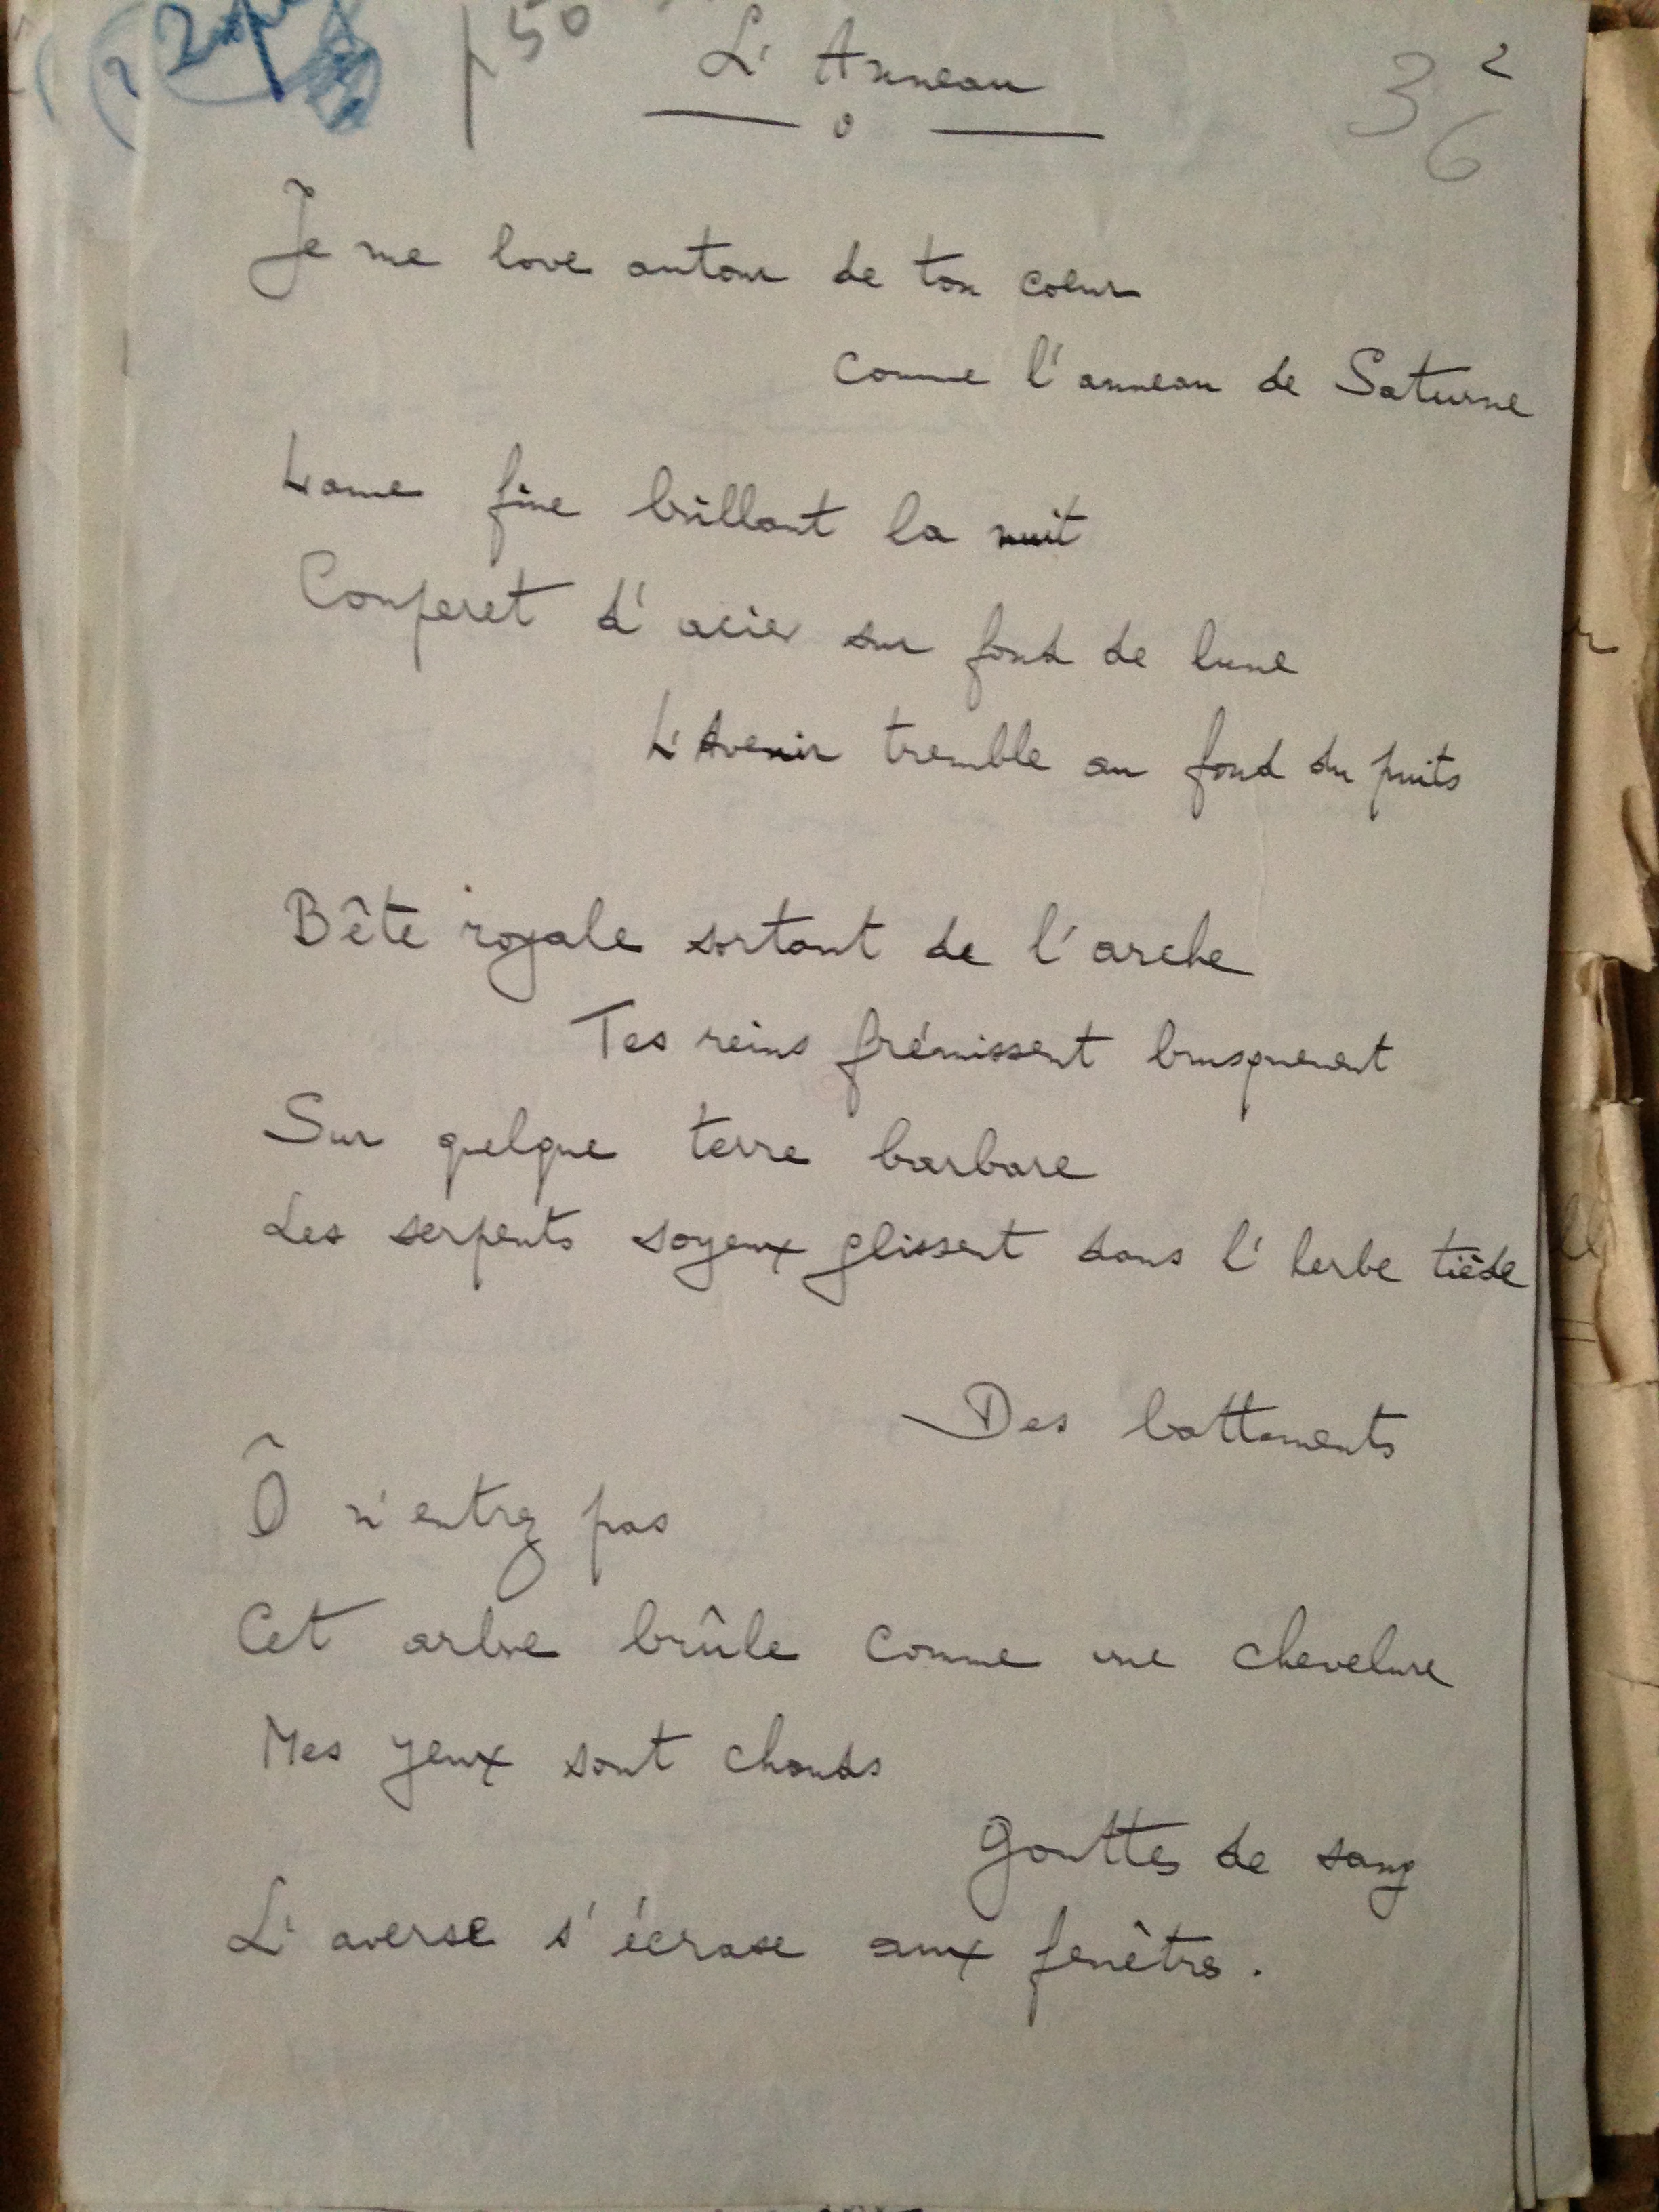 p50
36
L'Anneau
Je me love autour de ton cœur
Comme l'anneau de Saturne
Lame fine brillant la nuit
Couperet d'acier sur fond de lune
L'Avenir tremble au fond du puits
Bête royale sortant de l'arche
Tes reins frémissent brusquement
Sur quelque terre barbare
Les serpents soyeux glissent dans l'herbe tiède
Des battements
Ô n'entrez pas
Cet arbre brûle comme une chevelure
Mes yeux sont chauds
Gouttes de sang
L'averse s'écrase aux fenêtres.